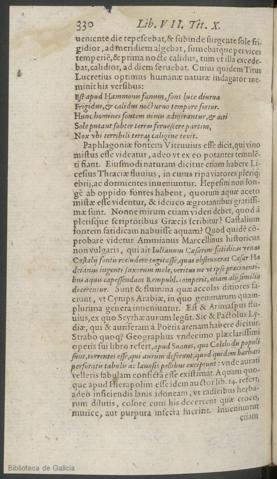 330 Lib. VII. Tet. X.
ueniente die tepescebat, & subinde surgente sole fri-
gidior, ad meridiem algebat, sumebatque peruices
temperiē, & prima nocte calidus, tum vt illa excede-
bat, calidior, ad diem feruebat. Cuius quidem Titus
Lucretius optimus humanæ naturæ indagator me-
minit his versibus:
Est apud Hammonis fanum, fons luce diurna
Frigidus, & calidus nocturno tempore fertur.
Hunc homines fontem nimis admirantur, & acri
Sole putant subter terras feruescere partim,
Nox vbi terribili terras caligine texit.
Paphlagoniæ fontem Vitruuius esse dicit, qui vino
mistus esse videatur, adeo vt ex eo potantes temulē-
ti fiant. Eiusmodi naturam dicitur etiam habere Li-
cesius Thraciæ fluuius, in cuius ripa viatores pleriq;
ebrij, ac dormientes inueniuntur. Hepsesini non lon-
gè ab oppido fontes habent, quorum aquæ aceto
mistæ esse videntur, & ideirco ægrotantibus gratissi-
mæ sunt. Nonne mirum etiam videri debet, quod à
plerisque scriptoribus Græcis scribitur? Cassalium
fontem fatidicam nabuisse aquam? Quod quidē cō-
probare videtur Ammianus Marcellinus historicus
non vulgaris, qui ait Iulianum Cæsarem fatidicas venas
Castalij fontis recludere cogitasse, quas obstruxerat Cæsar Ha
drianus ingenti saxorum mole, veritus ne vt ipse præcinenti-
bus aquis capessendam Rempubl. comperit, etiam alij similia
docerentur. Sunt & flumina quæ accolas ditiores fa-
ciunt, vt Cynips Arabiæ, in quo gemmarum quam-
plurima genera inueniuntur. Est & Arimaspus flu-
uius, ex quo Scythæ aurum legūt. Sic & Pactolus Ly-
diæ, qui & auriferam à Poëtis arenam habere dicitur.
Strabo quoq; Geographus vndecimo præclarissimi
operis sui libro refert, apud Suanos, qui Colchi du populi
sunt, torrentes esse, qui aurum deferant, quod quidem barbari
perforatis tabulis ac lanosis pellibus excipiunt : vnde aurati
velleris fabulam confictā esse existimat. Aquam quo-
que apud Hierapolim esse idem auctor lib. 14. refert,
adeo inficiendis lanis idoneam, vt radicibus herba-
rum dilutis, colore cum his decertent quæ croco,
murice, aut purpura infecta fuerint. Inueniuntur
etiam
Biblioteca de Galicia